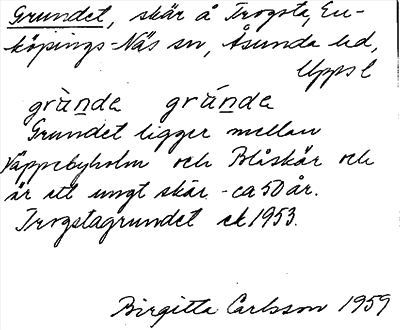 Grundet, skär å Trogsta, En-
köpings-Näs sn, Åsunda hd,
Upps l
grùnde grúnde
Grundet ligger mellan
Väppebyholm och Blåskär och
är ett ungt skär - ca 50 år.
Trogstagrundet ek 1953.
Birgitta Carlsson 1959